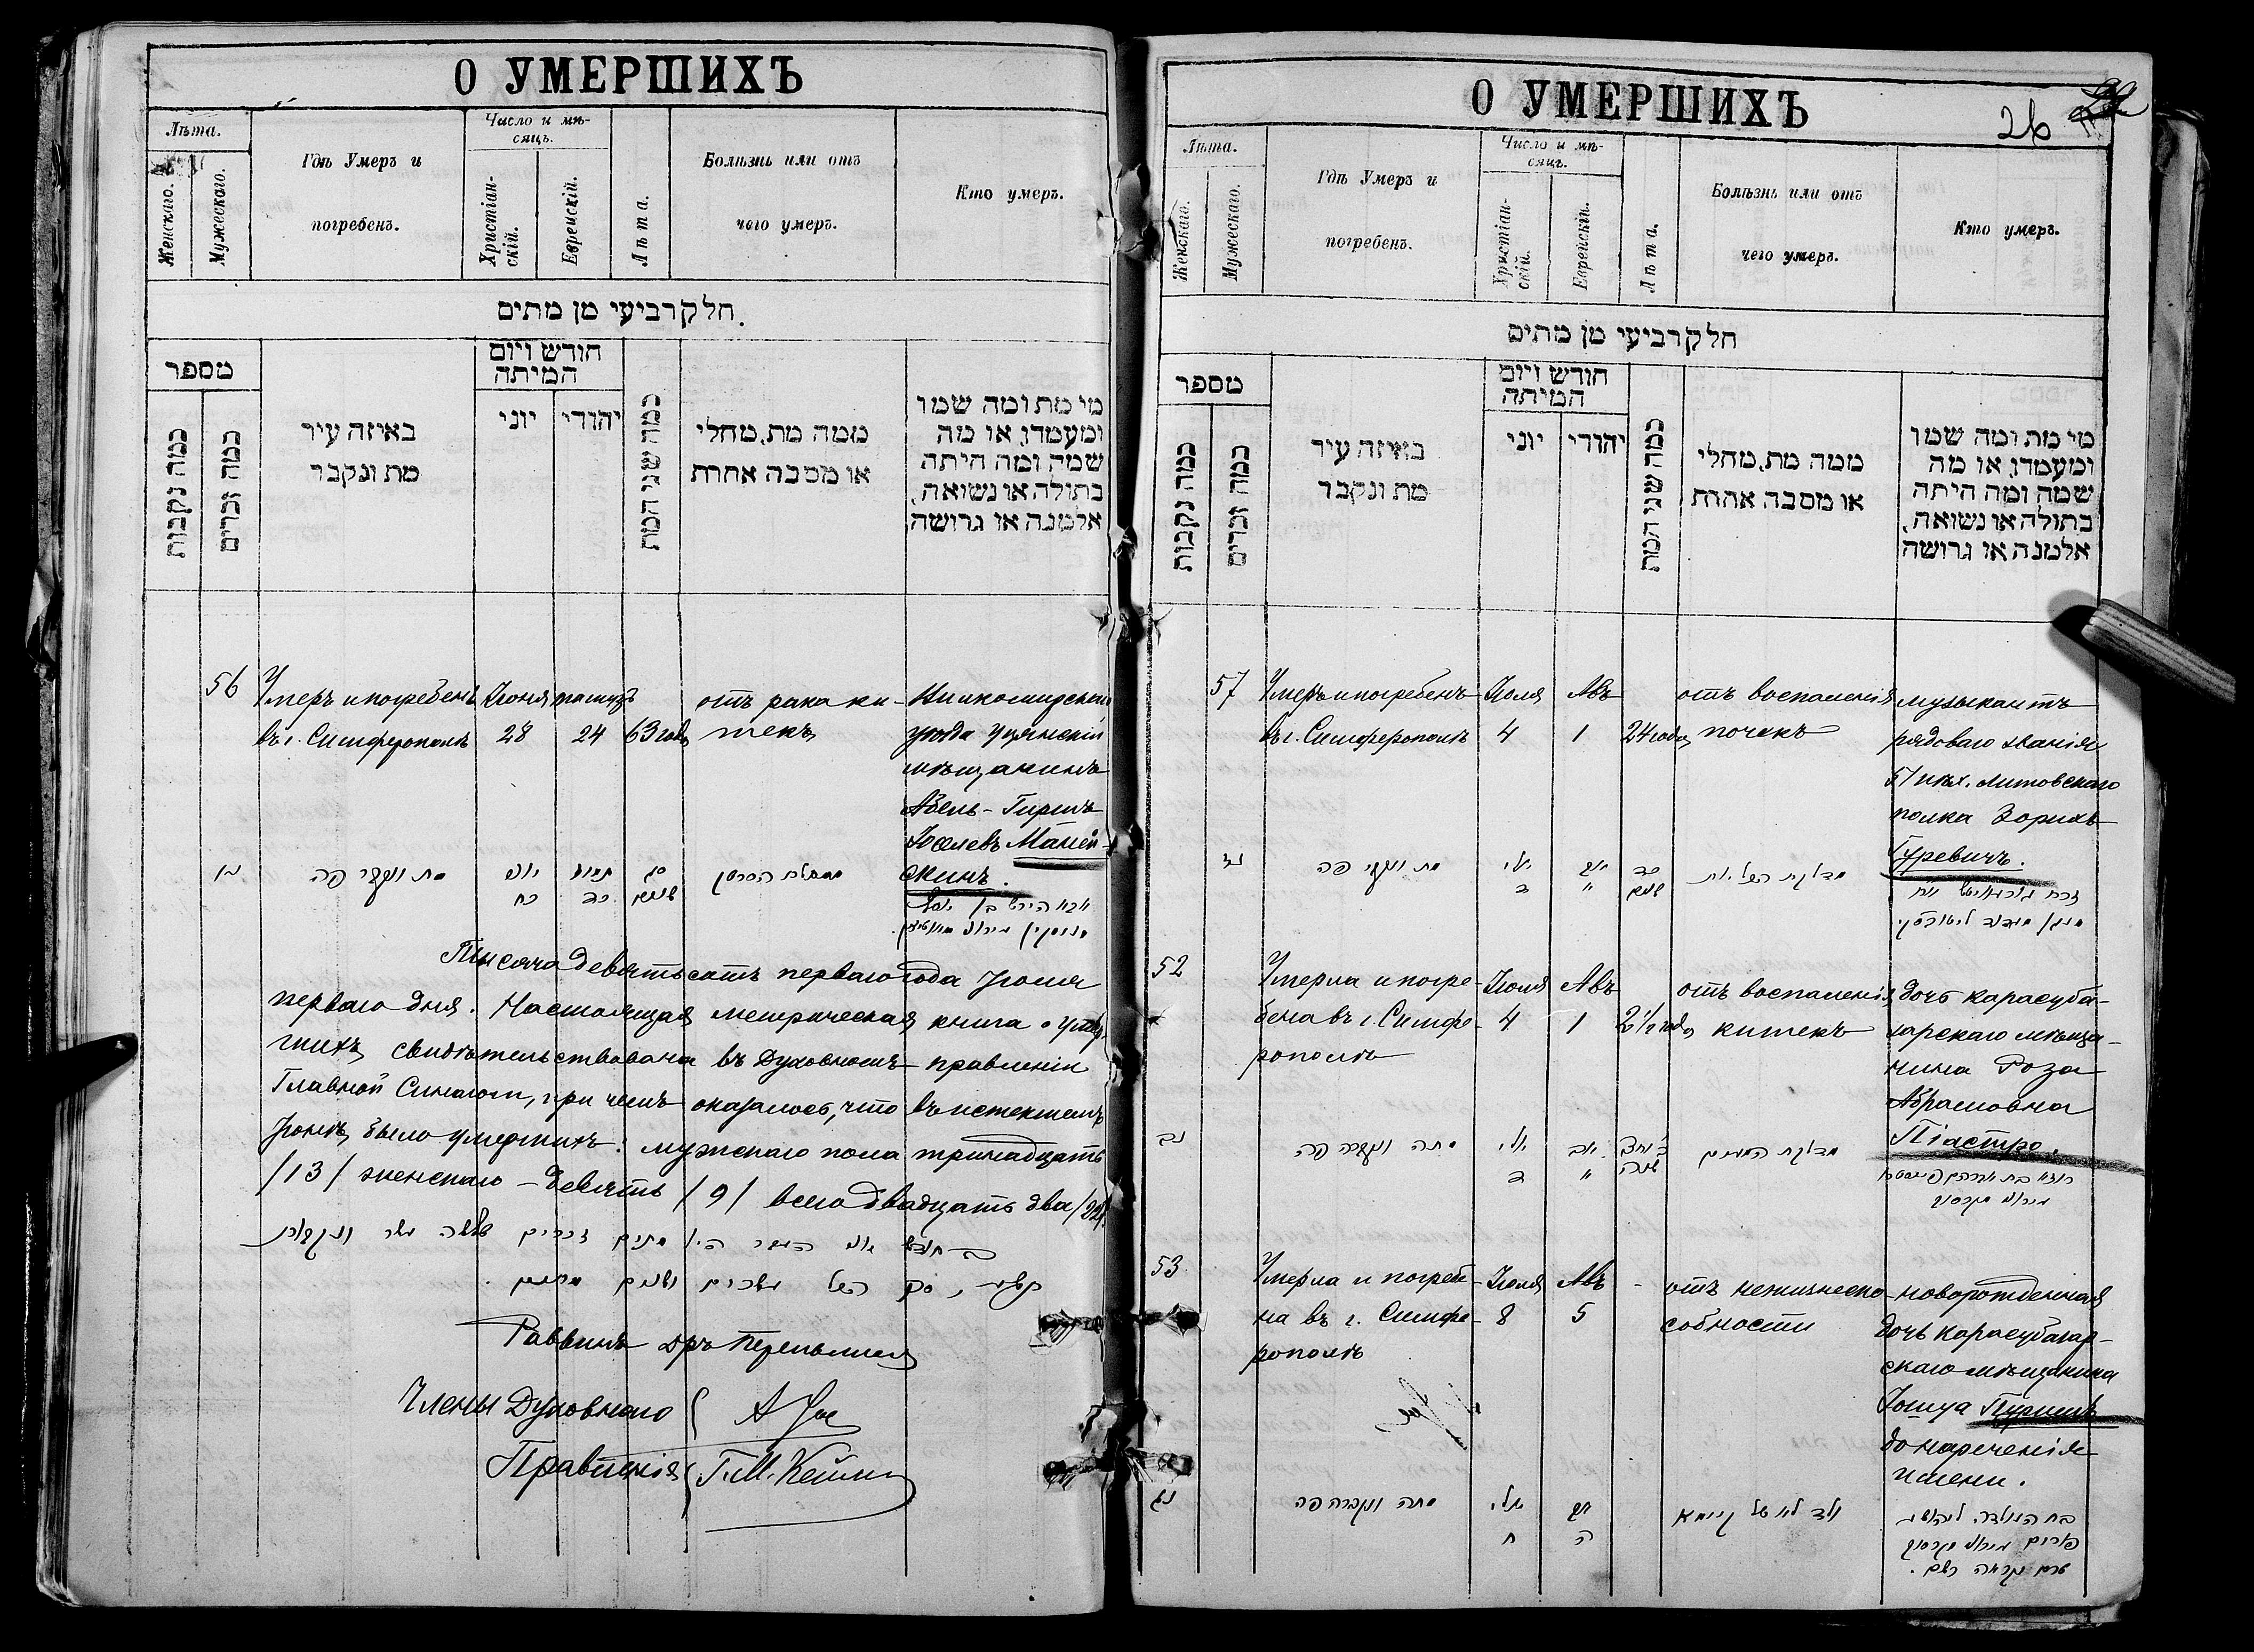 О УМЕРШИХЪ
Лѣта.
Женскаго.
Мужескаго.
Гдѣ Умеръ и
погребенъ.
Число и мѣ-
сяцъ.
Христіан-
скій.
Еврейскій.
Лѣта.
Болѣзнь или отъ
чего умеръ.
Кто умеръ.
חלק רביעי מן מתים
מספר
כמה נקבות
כמה זכרים
באיזה עיר
מת ונקבר
חודש ויום
המיתה
יוני
יהודי
כמה שני המת
ממה מת, מחלי
או מסבה אחרת
מי מת ומה שמו
ומעמדו, או מה
שמה ומה היתה
בתולה או נשואה,
אלמנה או גרושה
56
Умеръ и погребенъ
въ г. Симферополѣ
Іюня
28
тамузъ
24
63 года
отъ рака ки-
шекъ
уѣзда
мѣщанинъ
Абель-Гиршъ
Іоселевъ Маней-
скинъ.
נו
מת ונקבר פה
יוני
כח
תמוז
כד
סג
שנים
ממחלת הסרטן
Тысяча девятьсотъ перваго года Іюля
перваго дня. Настоящая метрическая книга о умер-
шихъ, свидѣтельствована въ Духовномъ правленіи
Главной Синагоги, при чемъ оказалось, что въ истекшемъ
Іюнѣ, было умершихъ: мужскаго пола тринадцать
/13/ женскаго - девять /9/ всего двадцать два /22/.
בחודש יוני העבר היו מתים זכרים שלשה עשר ונקבות
תשעה, סך הכל עשרים ושנים מתים.
Раввинъ
Члены Духовнаго
Правленія
О УМЕРШИХЪ
26
Лѣта.
Женскаго.
Мужескаго.
Гдѣ Умеръ и
погребенъ.
Число и мѣ-
сяцъ.
Христіан-
скій.
Еврейскій.
Лѣта.
Болѣзнь или отъ
чего умеръ.
Кто умеръ.
חלק רביעי מן מתים
מספר
כמה נקבות
כמה זכרים
באיזה עיר
מת ונקבר
חודש ויום
המיתה
יוני
יהודי
כמה שני המת
ממה מת, מחלי
או מסבה אחרת
מי מת ומה שמו
ומעמדו, או מה
שמה ומה היתה
בתולה או נשואה,
אלמנה או גרושה
57
Умеръ и погребенъ
въ г. Симферополѣ
Іюля
4
Авъ
1
24 года
отъ воспаленія
почекъ
музыкантъ
рядоваго званія
51 пѣх. Литовскаго
полка Зорихъ
Гуревичъ.
נז
מת ונקבר פה
יולי
ד
אב
א
כד
שנים
מדלקת הכליות
52
Умерла и погре-
бена въ г. Симфе-
рополѣ
Іюля
4
Авъ
1
2 1/2 года
отъ воспаленія
кишекъ
дочь карасуба-
зарскаго мѣща-
нина Роза
Абрамовна
Піастро.
נב
מתה ונקברה פה
יולי
ד
אב
א
שנה
מדלקת המעים
53
Умерла и погребе-
на въ г. Симфе-
рополѣ
Іюля
8
Авъ
5
-
отъ нежизнеспо-
собности
новорожденная
дочь карасубазар-
скаго мѣщанина
Іошуа Пуримъ
до нареченія
имени.
נג
מתה ונקברה פה
יולי
ח
אב
ה
ולד לא של קיימא